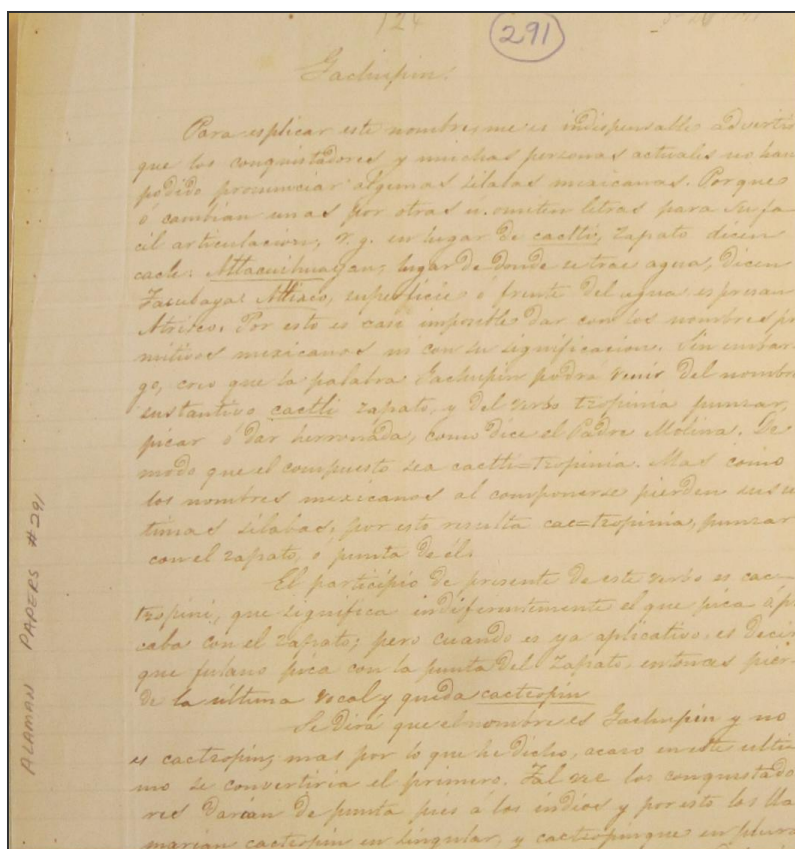 124
291
Gachupin.
Para esplicar este nombre, me es indispensable advertir
que los conquistadores y muchas personas actuales no han
podido pronunciar algunas silabas mexicanas. Porque
ó cambian unas por otras ú omiten letras para su fa
cil articulacion, v. g. en lugar de cactli, zapato dicen
cacle: Atlacuihuayan, lugar de donde se trae agua, dicen
Tacubaya: Atlixco, superficie ó frente del agua espresan
Atrisco. Por esto es casi imposible dar con los nombres pri
mitivos mexicanos ni con su significacion. Sin embar
go, creo que la palabra Gachupin podra venir del nombre
sustantivo cactli zapato, y del verbo tzopinia punzar,
picar ó dar herronada, como dice el Padre Molina. De
modo que el compuesto sea cactli=tzopinia. Mas como
los nombres mexicanos al componerse pierden sus ul
timas silabas, por esto resulta cac=tzopinia, punzar
con el zapato, ó punta de él.
El participio de presente de este verbo es cac=
tzopini, que significa indiferentemente el que pica ó pi
caba con el zapato; pero cuando es ya aplicativo, es decir
que fulano pica con la punta del zapato, entonces pier-
de la última vocal y queda cactzopin
Se dirá que el nombre es Gachupin y no
es cactzopin, mas por lo que he dicho, acaso en este ulti
mo se convertiria el primero. Tal vez los conquistado
res darian de punta pies á los indios y por esto los lla
marian cactzopin en singular, y cactzopinque en plura
ALAMAN PAPERS #291